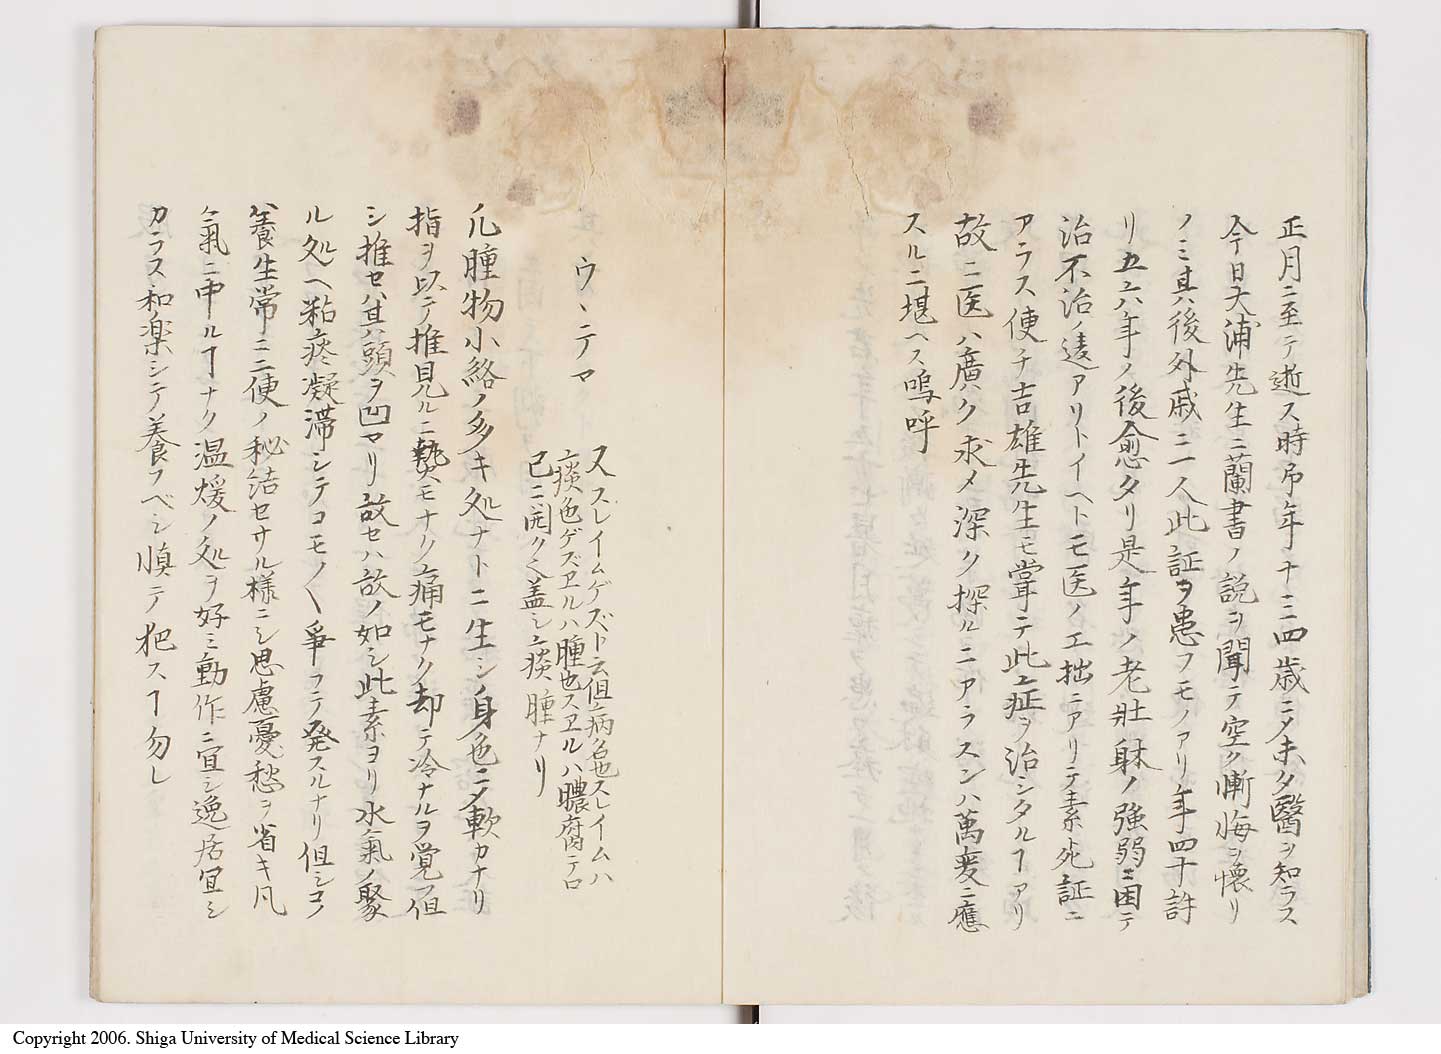 正月ニ至テ逝ス時吊年十三四歳ニメ未タ醫ヲ知ラス
今日大浦先生ニ蘭書ノ説ヲ聞テ空ク慚悔ヲ懐り
ノミ其後外戚ニ一人此証ヲ患フモノアリ年四十許
リ五六年ノ後愈タリ是年ノ老壮躰ノ強弱ニ因テ
治不治ノ違アリトイヘトモ医ノ工拙ニアリテ素死証ニ
アラス便チ吉雄先生モ掌テ此症ヲ治シタルヿアリ
故ニ医ハ廣ク求メ深ク探ルニアラスンハ萬変ニ應
スルニ堪ヘス嗚呼
ウヽテマ
ススレイムゲズト云但病名也スレイムハ
痰也ゲズヱルハ腫也スヱルハ膿腐テロ
已ニ囲ク之蓋シ痰腫ナリ
凡腫物小絡ノ多キ処ナトニ生シ身色ニメ軟カナリ
指ヲ以テ推見ルニ熱モナク痛モナク却テ冷ナルヲ覚フ但
シ推セハ其頭ヲ凹マリ放セハ故ノ如シ此素ヨリ水氣ノ聚
ル処ヘ粘痰凝滞シテコモノ〱争フテ発スルナリ但シコノ
養生常ニ二便ノ秘結セサル様ニシ思慮憂愁ヲ省キ凡
氣ニ中ルヿナク温煖ノ処ヲ好ミ動作ニ宜シ逸居宜シ
カラス和楽シテ養フベシ慎テ犯スヿ勿レ
Copyright 2006. Shiga University of Medical Science Library